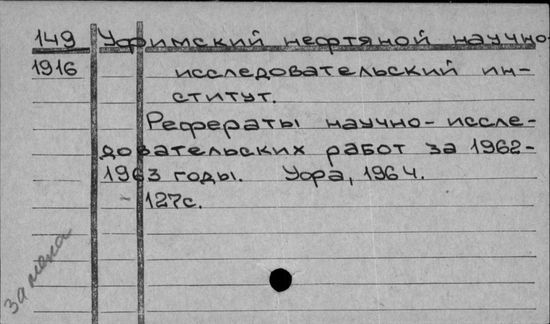 149 Уфимский нефтяной научно-
1916 исследовательский ин-
ститут.
Рефераты научно-иссле-
довательских работ за 1962-
1963 годы. Уфа, 1964.
127с.
замена